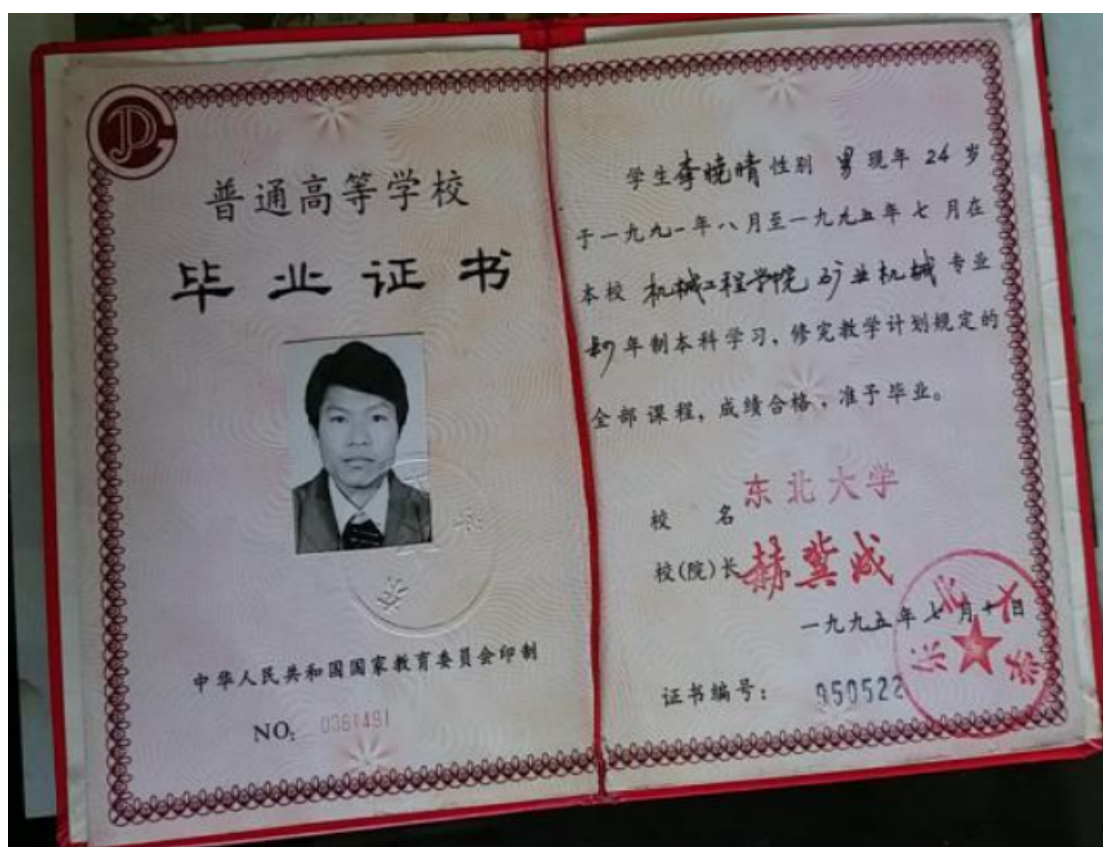 普通高等学校
毕业证书
中华人民共和国国家教育委员会印制
NO: 0361491
学生李晓晴性别 男 现年 24 岁
于一九九一年八月至一九九五年七月在
本校 机械工程学院 矿业机械 专业
四年制本科学习,修完教学计划规定的
全部课程,成绩合格,准予毕业。
校 名 东北大学
校(院)长 赫冀成
一九九五年七月十日
证书编号: 950522
东北大学